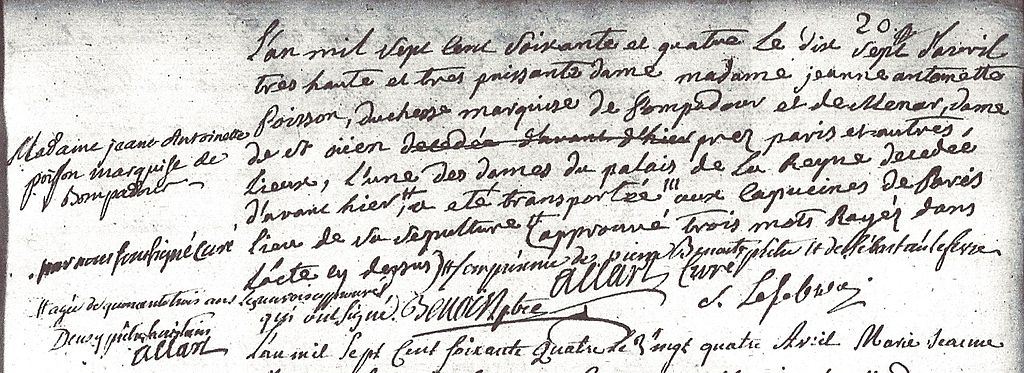 20
L'an mil sept cent soixante et quatre le dix sept d'avril
tres haute et tres puissante dame madame jeanne antoinette
Poisson, duchesse marquise de Pompadour et de Menar, dame
de St oüen decedée d'avant d'hier prez paris et autres
Lieux, L'une des dames du palais de La Reyne decedée
d'avant hier, a eté transportée aux Capucines de Paris
Lieu de sa sepulture (approuvé trois mots Rayéz dans
L'acte cy dessus) en presence de pierre Benoit ptre et de Sebastien lefevre
qui ont signé. Benoist ptre allart Curé S. Lefebvre
L'an mil Sept Cent soixante quatre le vingt quatre Avril Marie jeanne
Madame jeanne Antoinette
poisson marquise de
Pompadour
par nous soussigné Curé
agée de quarante trois ans
allart